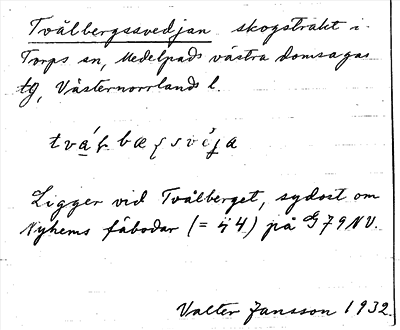 Tvålbergssvedjan skogstrakt i
Torps sn, Medelpads västra domsagas
tg, Västernorrlands l.
Ligger vid Tvålberget, sydost om
Nyhems fäbodar (= 44) på G79NV.
Valter Jansson 1932.